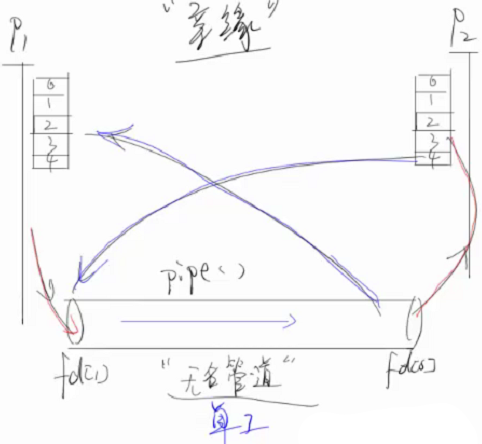 “亲缘”
P1
P2
0
1
2
3
4
0
1
2
3
4
pipe()
fd[1]
“无名管道”
fd[0]
单工